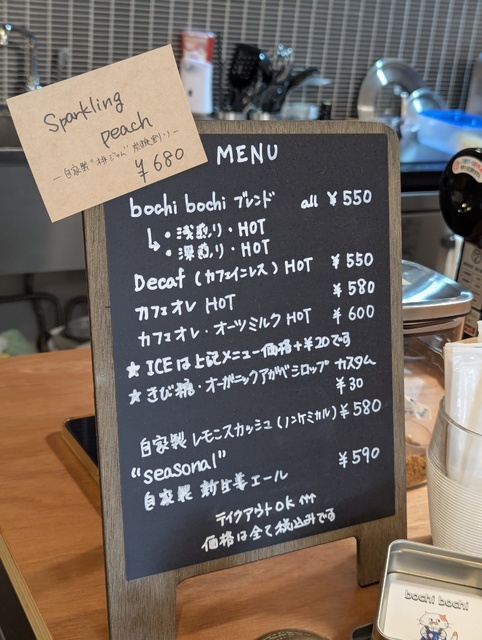 Sparkling
peach
ー自家製"桃じゃん"炭酸割りー
¥680
MENU
bochi bochi ブレンド all ¥550
↳・浅煎り・HOT
・深煎り・HOT
Decaf (カフェインレス) HOT ¥550
カフェオレ HOT ¥580
カフェオレ・オーツミルク HOT ¥600
★ ICEは上記メニュー価格+¥20です
★ きび糖・オーガニックアガベシロップ カスタム
¥30
自家製 レモンスカッシュ(ノンケミカル) ¥580
"seasonal"
自家製 新生姜エール ¥590
テイクアウトOK
価格は全て税込みです
bochi bochi